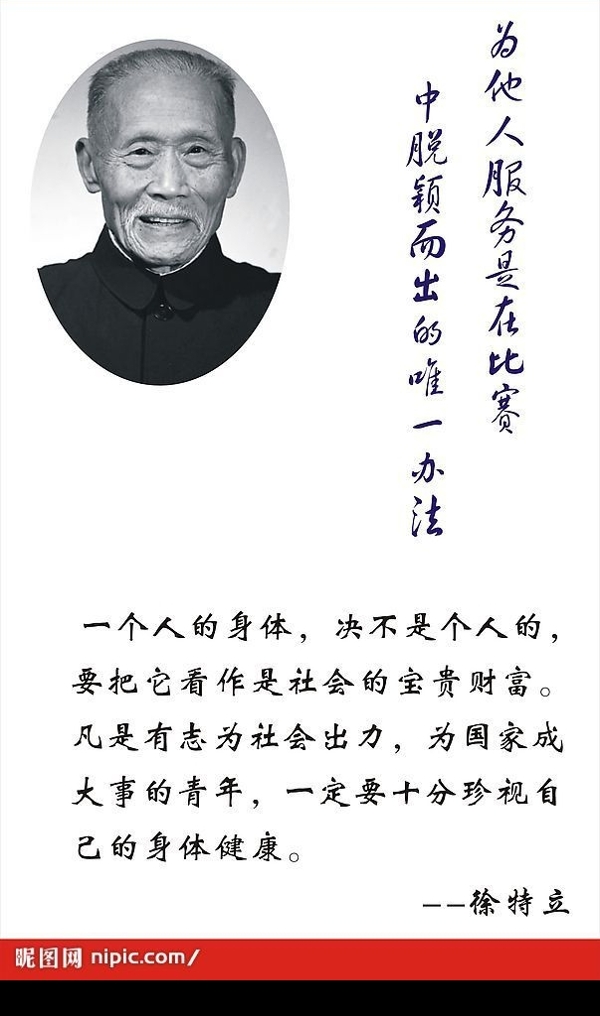 为他人服务是在比赛
中脱颖而出的唯一办法
一个人的身体，决不是个人的，
要把它看作是社会的宝贵财富。
凡是有志为社会出力，为国家成
大事的青年，一定要十分珍视自
己的身体健康。
--徐特立
昵图网 nipic.com/